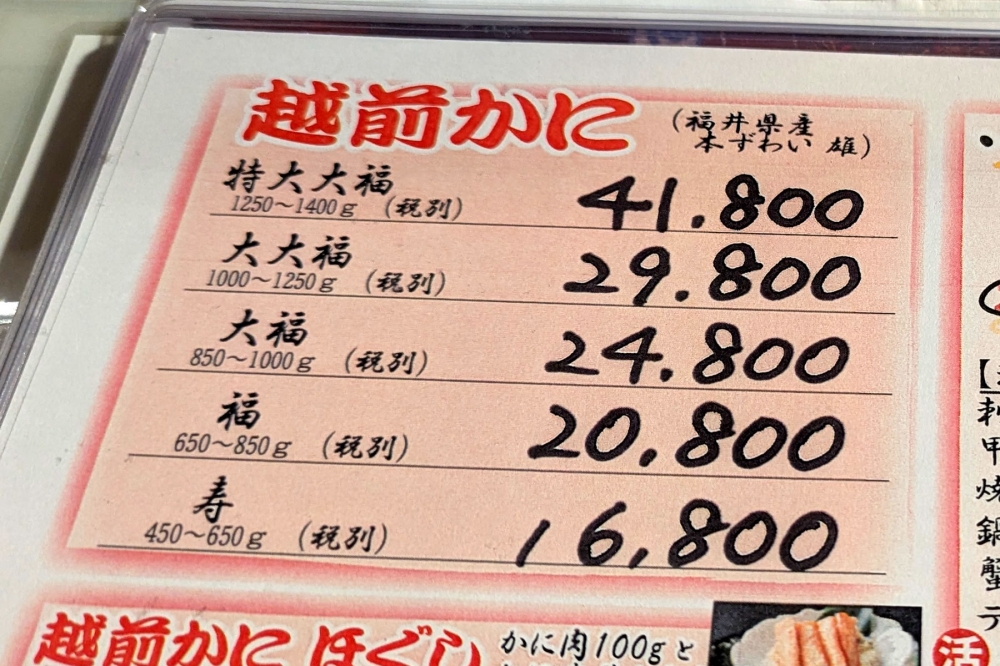 越前かに
(福井県産
本ずわい 雄)
特大大福
1250～1400g (税別)
41.800
大大福
1000～1250g (税別)
29.800
大福
850～1000g (税別)
24.800
福
650～850g (税別)
20.800
寿
450～650g (税別)
16,800
越前かに ほぐし
かに肉100gと
刺
甲
焼
鍋
蟹
テ
活